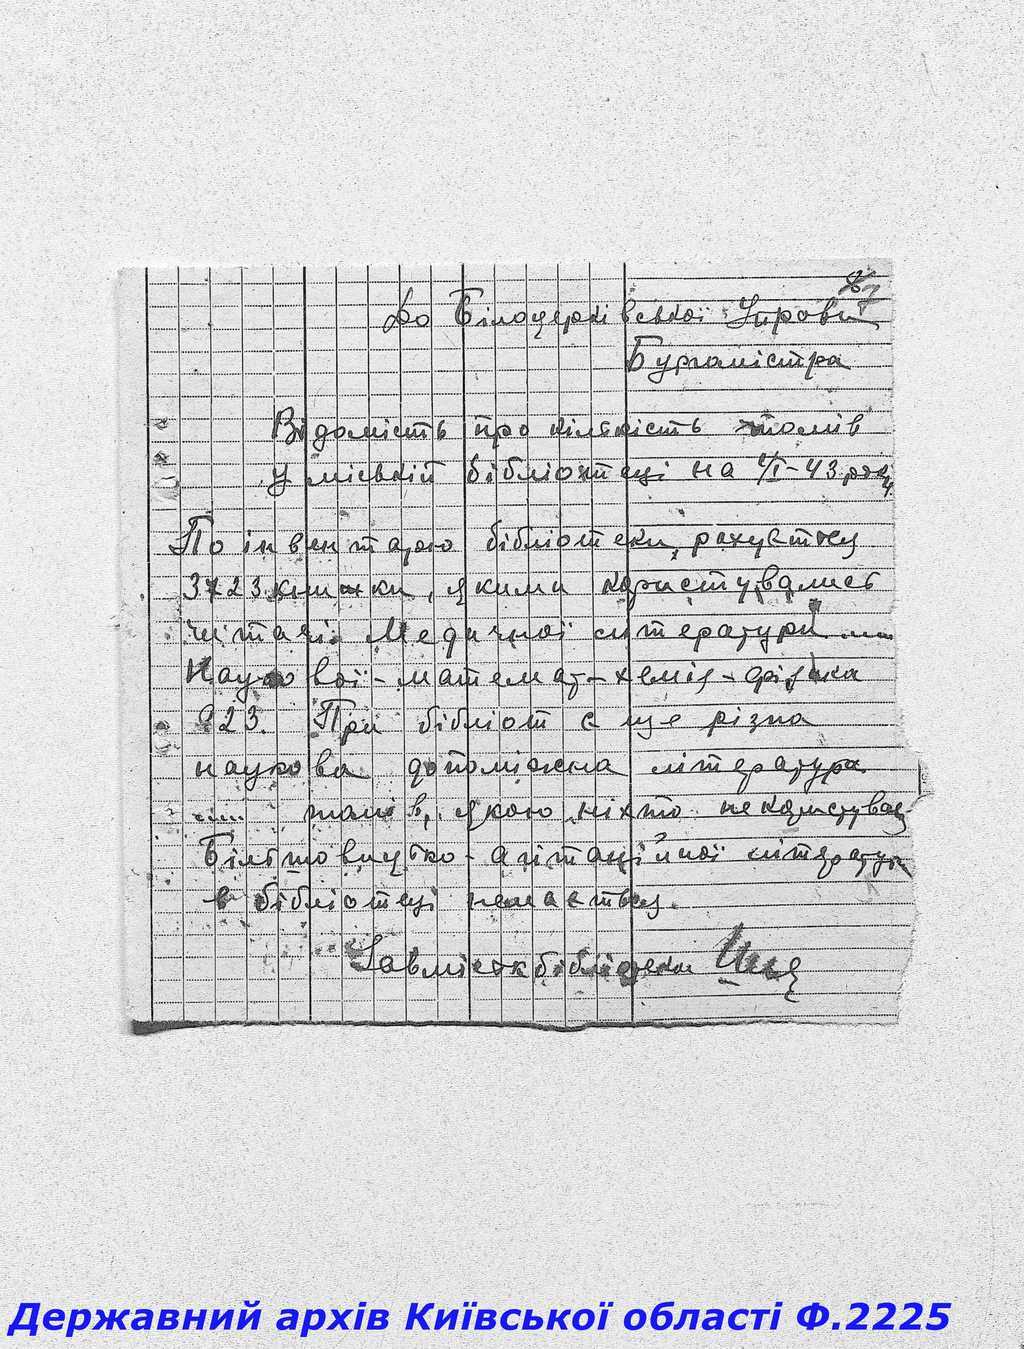 До Білоцерківської Управи
Бургомістра
Відомість про кількість томів
у міській бібліотеці на 1/I-43 року
По інвентарю бібліотеки рахується
3723 книжки, якими користувались
читачі. Медичної літератури
Наукової - математ - хемія - фізика
923. При бібліот є ще різна
наукова допоміжна література
томів, якою ніхто не користував
Більшовицько-агітаційної літератури
в бібліотеці немається.
Завміськбібліотеки
Державний архів Київської області Ф.2225